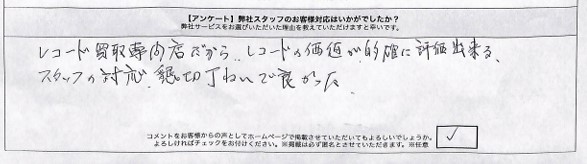 【アンケート】弊社スタッフのお客様対応はいかがでしたか?
弊社サービスをお選びいただいた理由を教えていただけますと幸いです。
レコード買取専門店だから、レコードの価値が的確に評価出来る、
スタッフの対応、懇切丁ねいで良かった
コメントをお客様からの声としてホームページで掲載させていただいてもよろしいでしょうか。
よろしければチェックをお付けください。※掲載は必ず匿名とさせていただきます。※任意